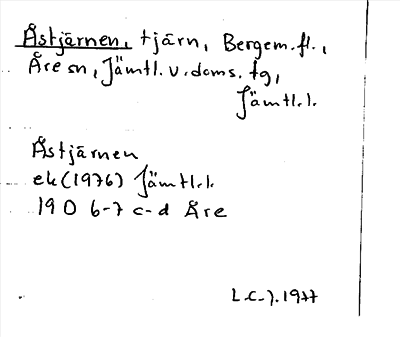 Åstjärnen, tjärn, Bergem.fl.,
Åre sn, Jämtl.v.doms.tg,
Jämtl.l.
Åstjärnen
ek (1976) Jämtl.l.
19D 6-7 c-d Åre
L.C-j.1977